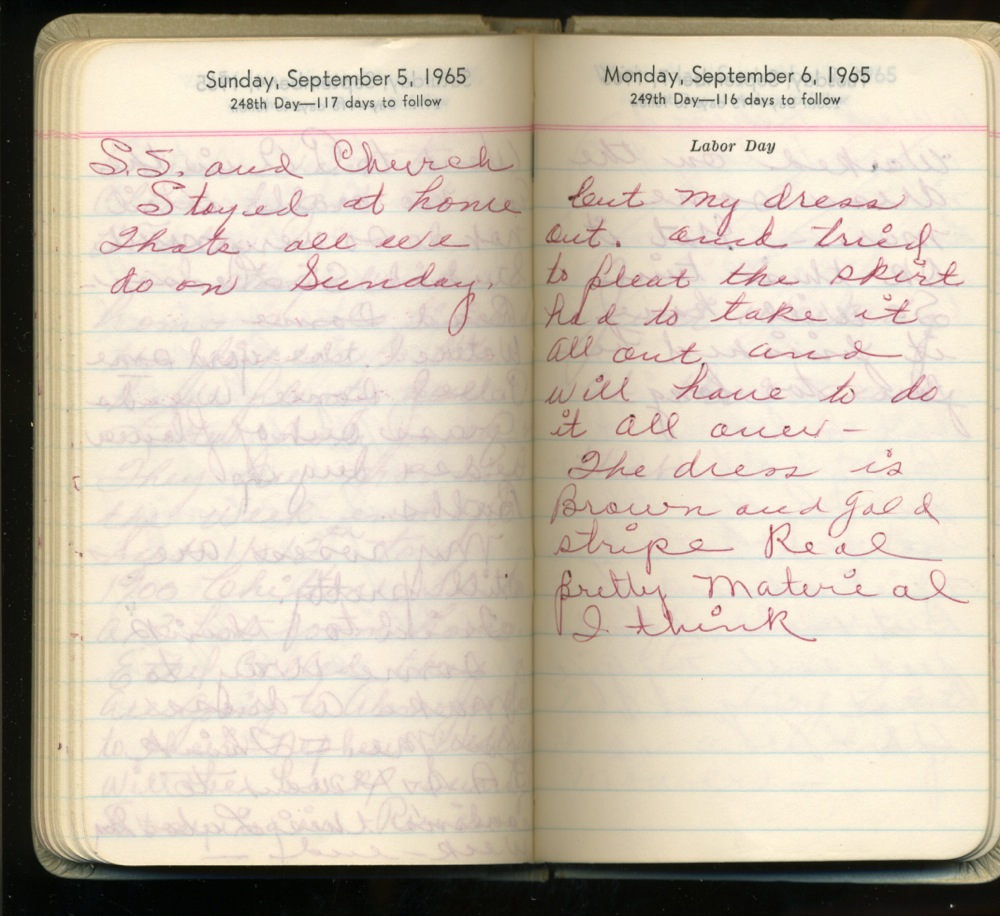 Sunday, September 5, 1965
248th Day—117 days to follow
S.S. and Church
Stayed at home
Thats all we
do on Sunday.
Monday, September 6, 1965
249th Day—116 days to follow
Labor Day
Cut my dress
out. and tried
to pleat the skirt
had to take it
all out and
will have to do
it all over —
The dress is
Brown and Gold
stripe Real
pretty Material
I think